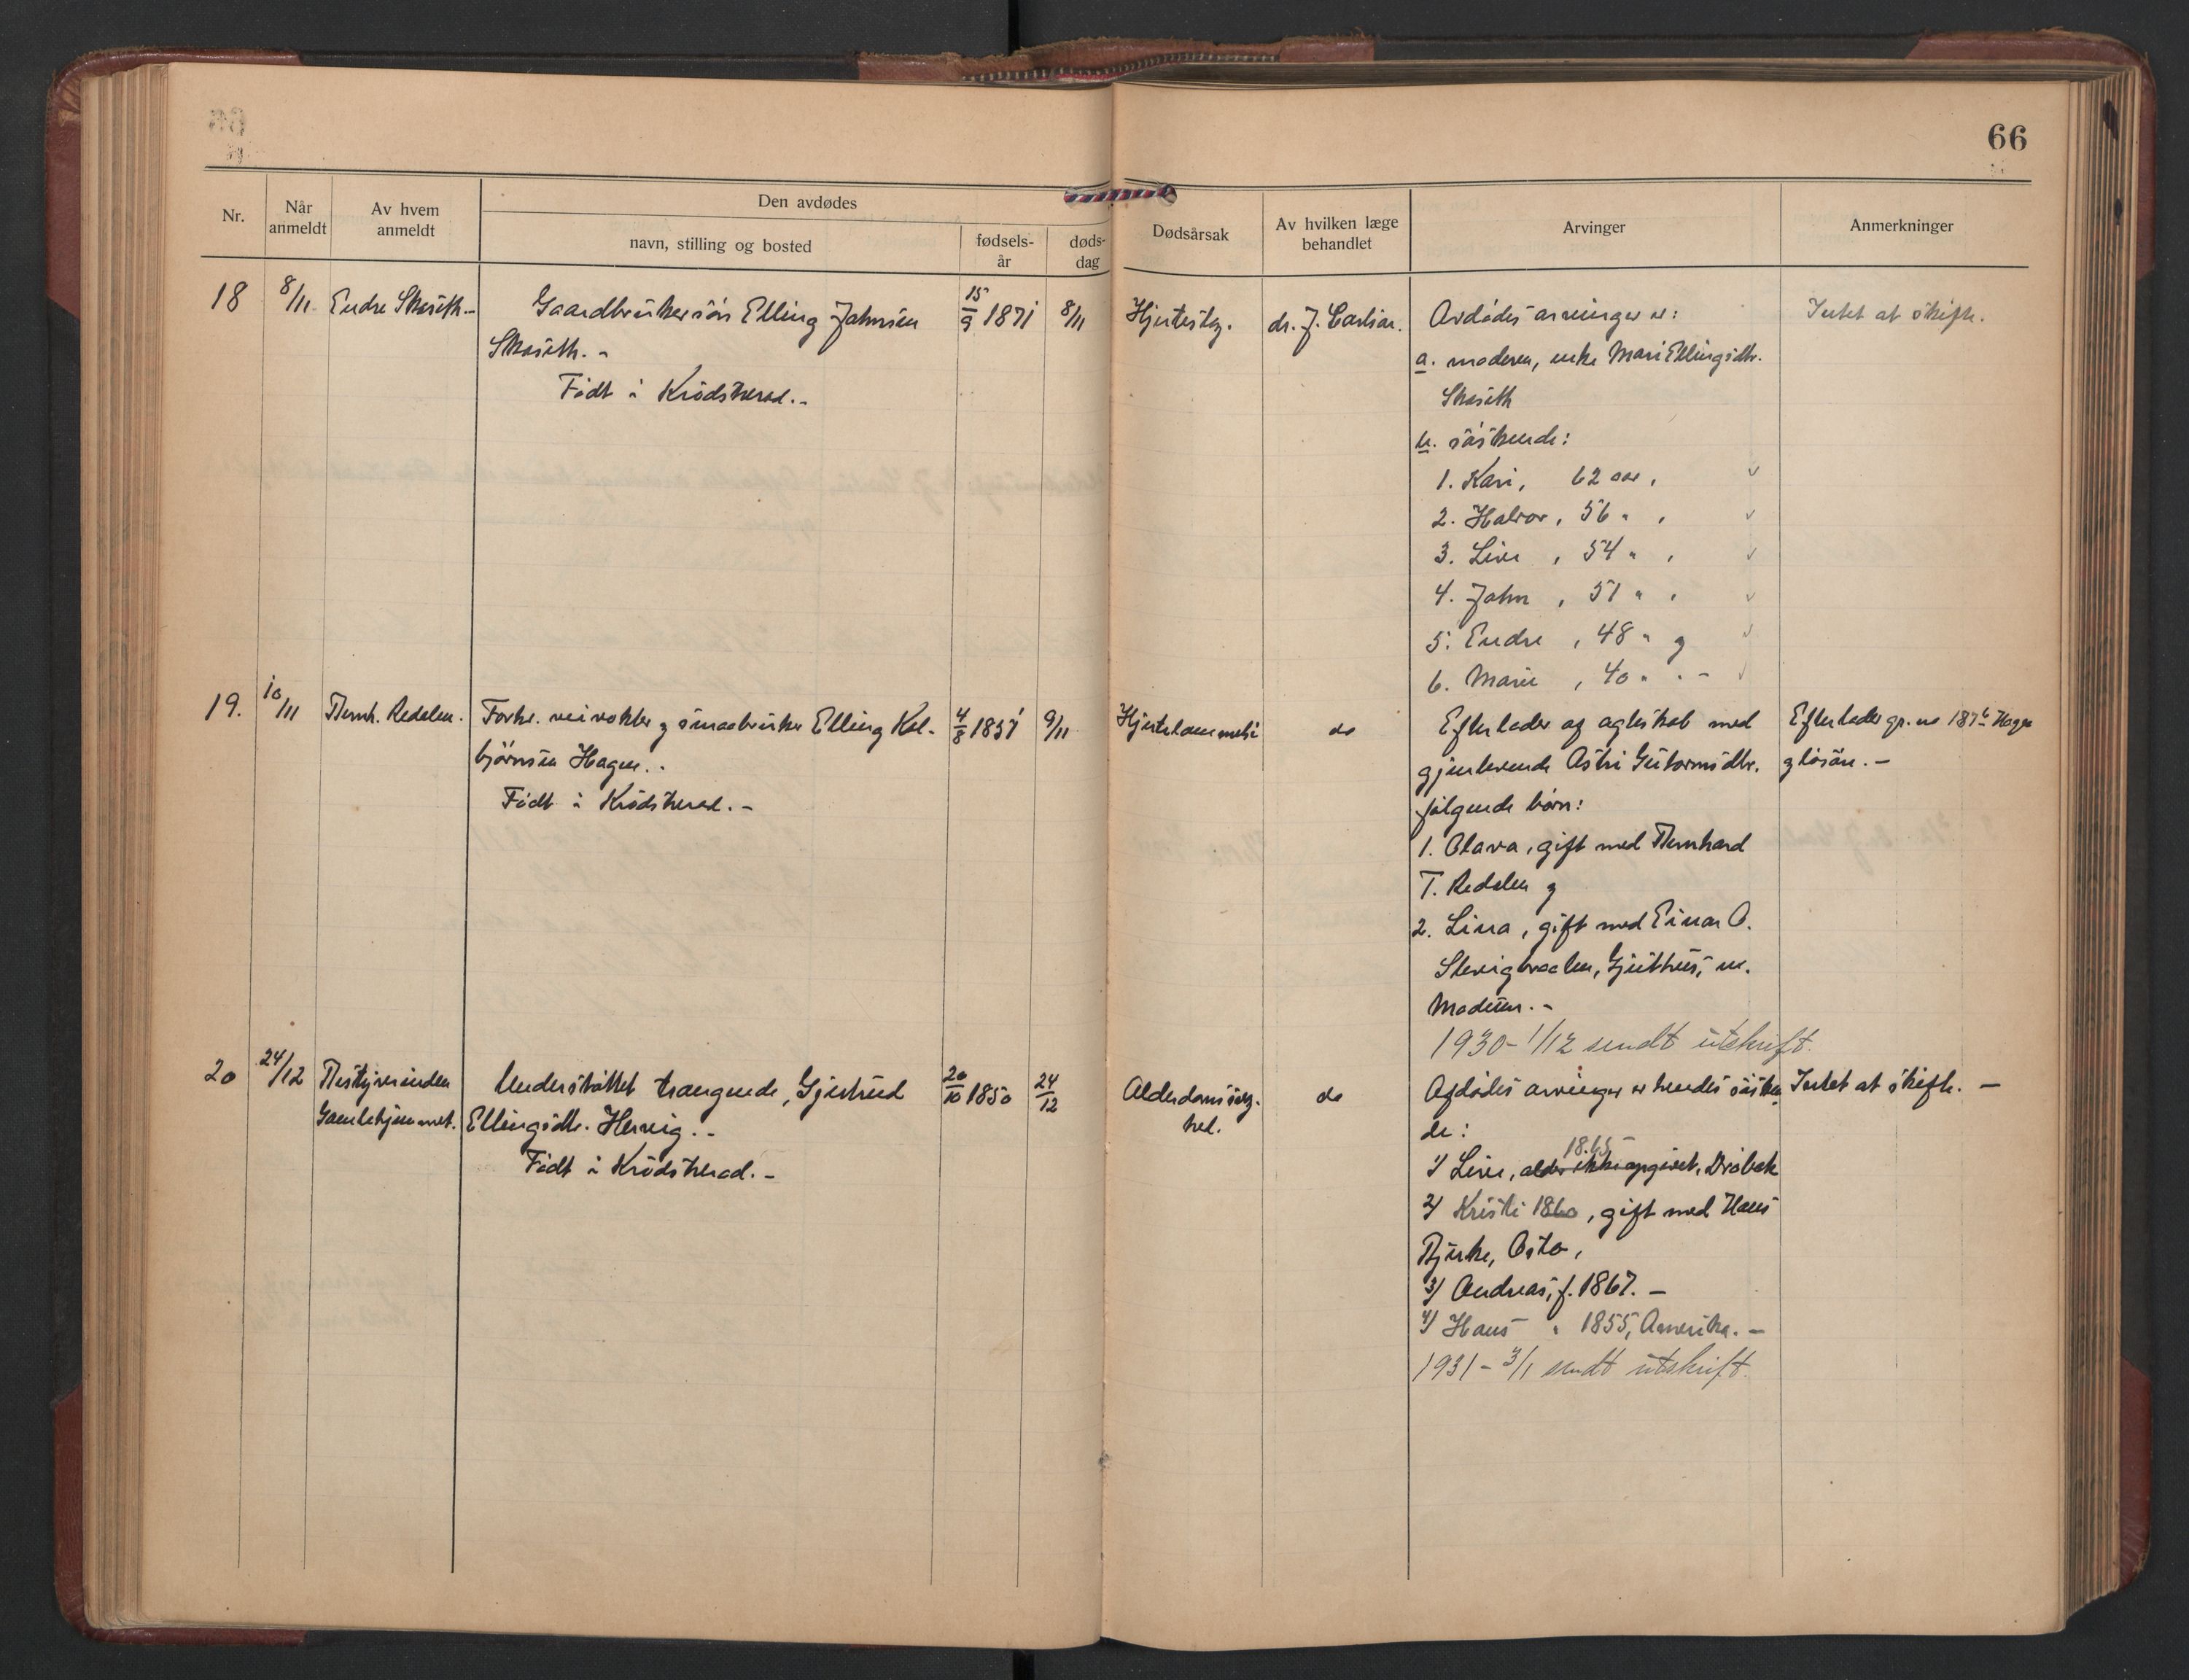 66
Nr.
Når anmeldt
Av hvem anmeldt
Den avdødes
navn, stilling og bosted
fødsels-år
døds-dag
Dødsårsak
Av hvilken læge behandlet
Arvinger
Anmerkninger
18
8/11
Endre Skaseth.-
Gaardbrukersøn Elling Jahnsen
Skaseth.-
Født i Krødsherad.-
15/9 1871
8/11
Hjertesteg.
dr. J. Carlsen.
Avdødes arvinger er:
a. moderen, enke Mari Ellingsdtr.
Skaseth
b. søskende:
1. Kari, 62 aar,
2. Halvor, 56 " ,
3. Live , 54 " ,
4. Jahn , 51 " ,
5. Endre , 48 " og
6. Marie , 40 " . -
Intet at skifte.
19.
10/11
Bernh. Redalen.
Forhv. veivokter og smaabruker Elling Kol-
bjørnsen Hagen.-
Født i Krødsherad.-
4/8 1851
9/11
Hjertelammelse
do
Efterlader og agteskab med
gjenlevende Astri Guttormsdtr.
følgende børn:
1. Olava, gift med Bernhard
T. Redalen og
2. Lina, gift med Einar O.
Gjeithus, m.
Modum.-
1930- 1/12 sendt utskrift.
Efterlader gr. no 187 Hagen
og løsøre.-
20
24/12
Bestyrerinden
Gamlehjemmet.
Understøttet trængende, Gjertrud
Ellingsdtr. Hervig.-
Født i Krødsherad.-
20/10 1850
24/12
Alderdomssvag-
hed.
do
Afdødes arvinger er hendes søsken
de:
1865
1/ Live, alder ikke opgivet, Drøbak
2/ Kristi 1860, gift med Hans
Bjerke, Oslo,
3/ Andreas, f. 1867.-
4/ Hans " 1855, Amerika.-
1931- 3/1 sendt utskrift.
Intet at skifte.-